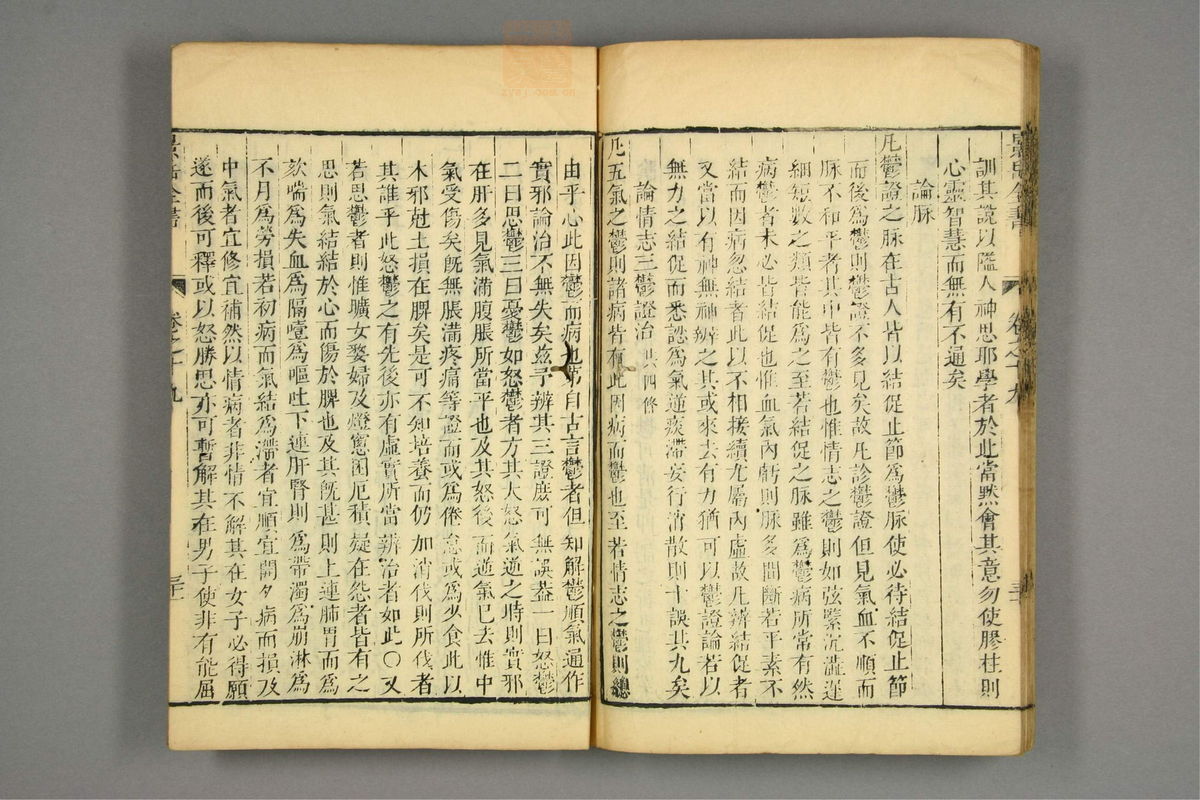 訓其說以隘人神思耶學者於此當默會其意勿使膠柱則
心靈智慧而無有不通矣
論脉
凡鬱證之脉在古人皆以結促止節爲鬱脉使必待結促止節
而後爲鬱則鬱證不多見矣故凡診鬱證但見氣血不順而
脉不和平者其中皆有鬱也惟情志之鬱則如弦緊沉濇遲
細短數之類皆能爲之至若結促之脉雖爲鬱病所常有然
病鬱者未必皆結促也惟血氣內虧則脉多間斷若平素不
結而因病忽結者此以不相接續尤屬內虛故凡辨結促者
又當以有神無神辨之其或來去有力猶可以鬱證論若以
無力之結促而悉認爲氣逆痰滯妄行消散則十誤其九矣
論情志三鬱證治 共四條
凡五氣之鬱則諸病皆有此因病而鬱也至若情志之鬱則總
由乎心此因鬱而病也第自古言鬱者但知解鬱順氣通作
實邪論治不無失矣兹予辨其三證庶可無誤葢一曰怒鬱
二曰思鬱三曰憂鬱如怒鬱者方其大怒氣逆之時則實邪
在肝多見氣滿腹脹所當平也及其怒後而逆氣已去惟中
氣受傷矣旣無脹滿疼痛等證而或爲倦怠或爲少食此以
木邪尅土損在脾矣是可不知培養而仍加消伐則所伐者
其誰乎此怒鬱之有先後亦有虛實所當辨治者如此○又
若思鬱者則惟曠女嫠婦及燈窻困厄積疑在怨者皆有之
思則氣結結於心而傷於脾也及其旣甚則上連肺胃而爲
欬喘爲失血爲隔噎爲嘔吐下連肝腎則爲帶濁爲崩淋爲
不月爲勞損若初病而氣結爲滯者宜順宜開久病而損及
中氣者宜修宜補然以情病者非情不解其在女子必得願
遂而後可釋或以怒勝思亦可暫解其在男子使非有能屈
景岳全書
卷之十九